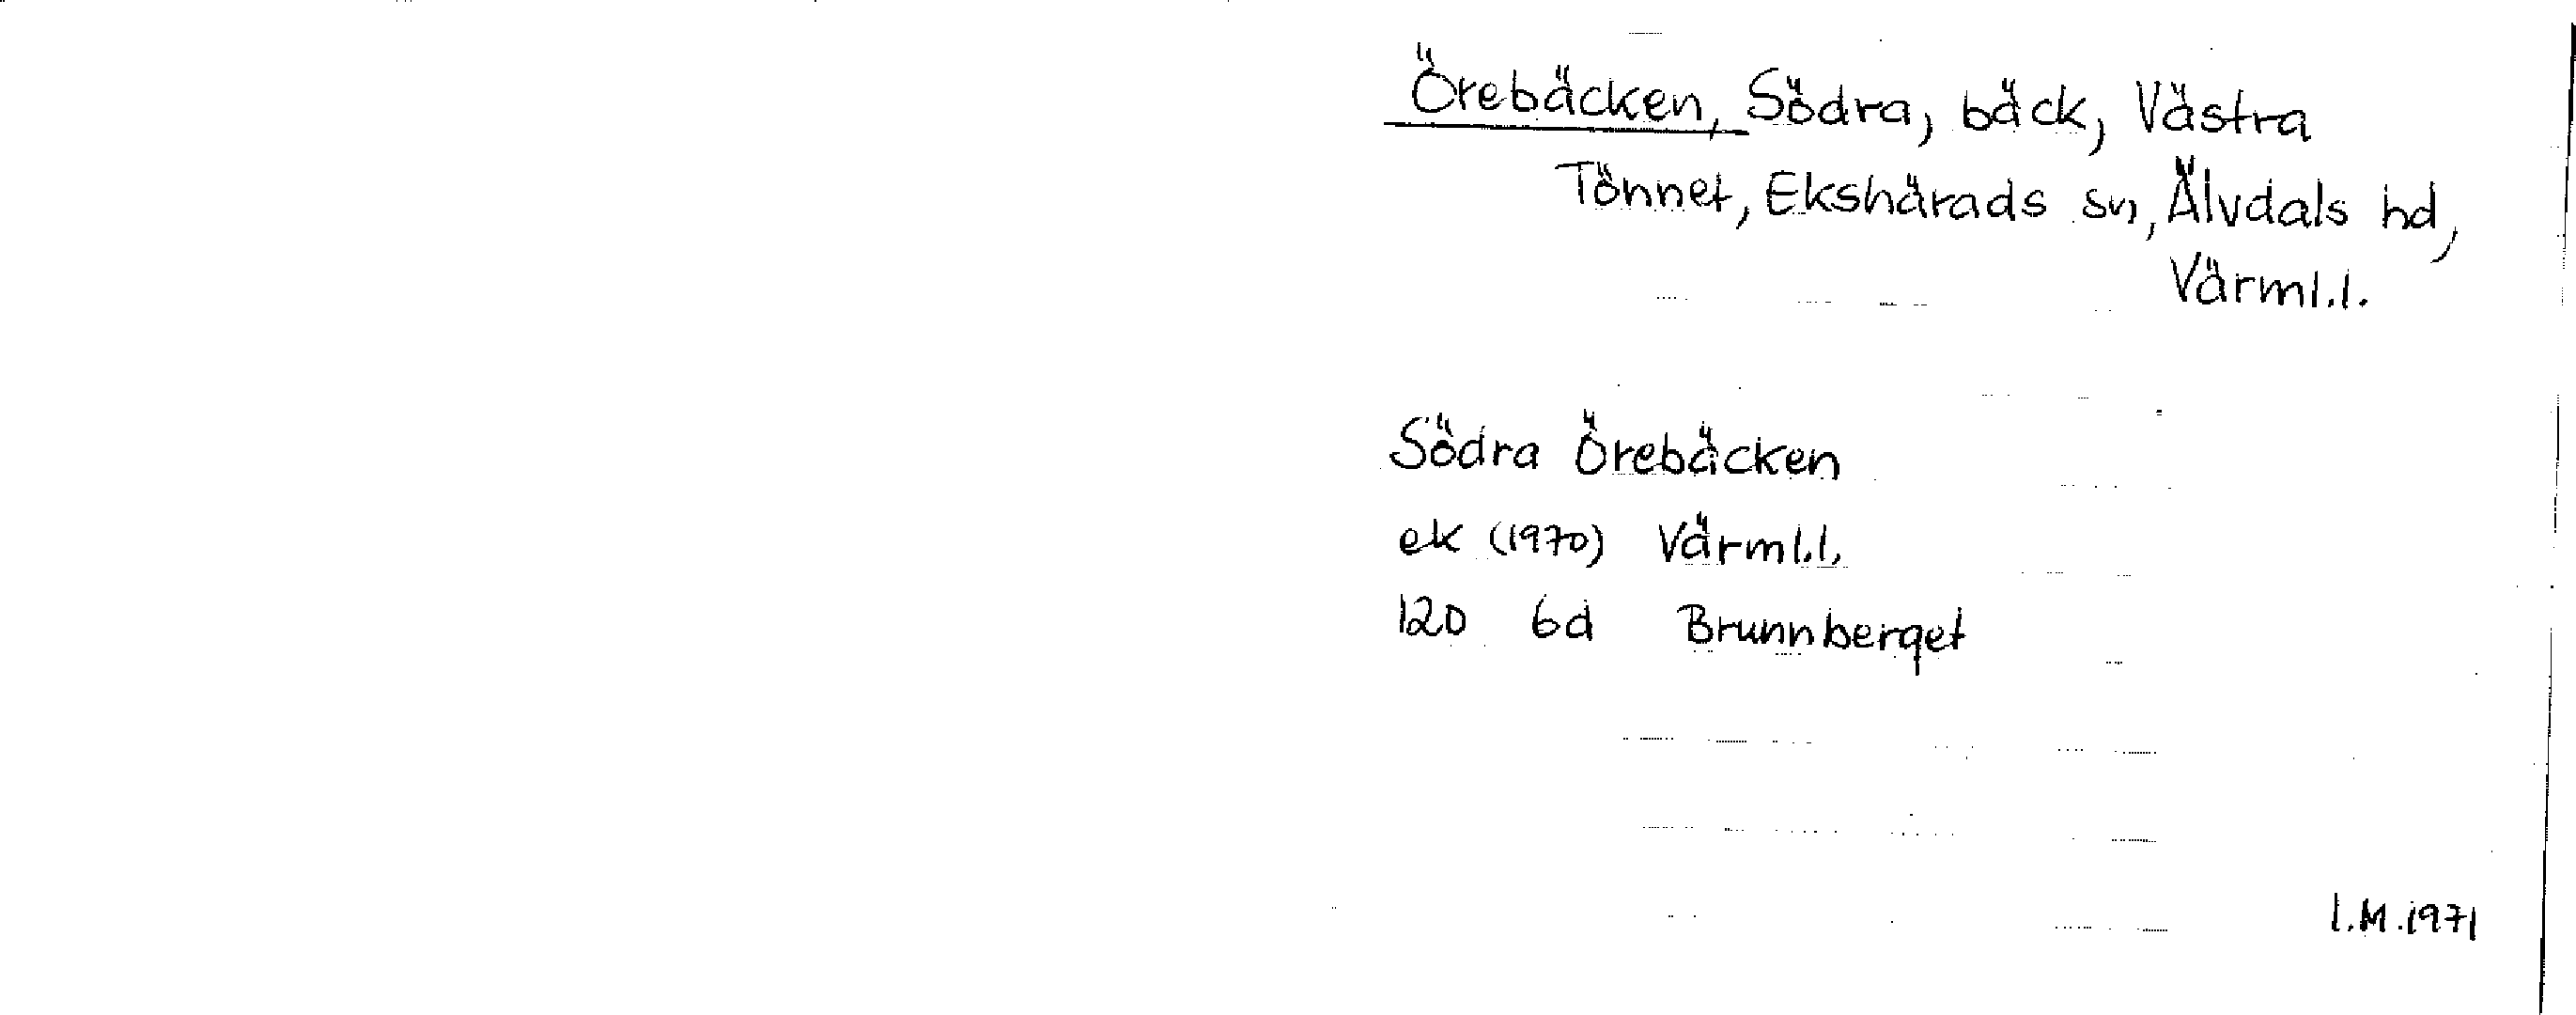 Örebäcken, Södra, bäck, Västra
Tönnet, Ekshärads sn, Älvdals hd,
Värml.l.
Södra Örebäcken
ek (1970) Värml.l.
12D 6d Brunnberget
I.M.1971